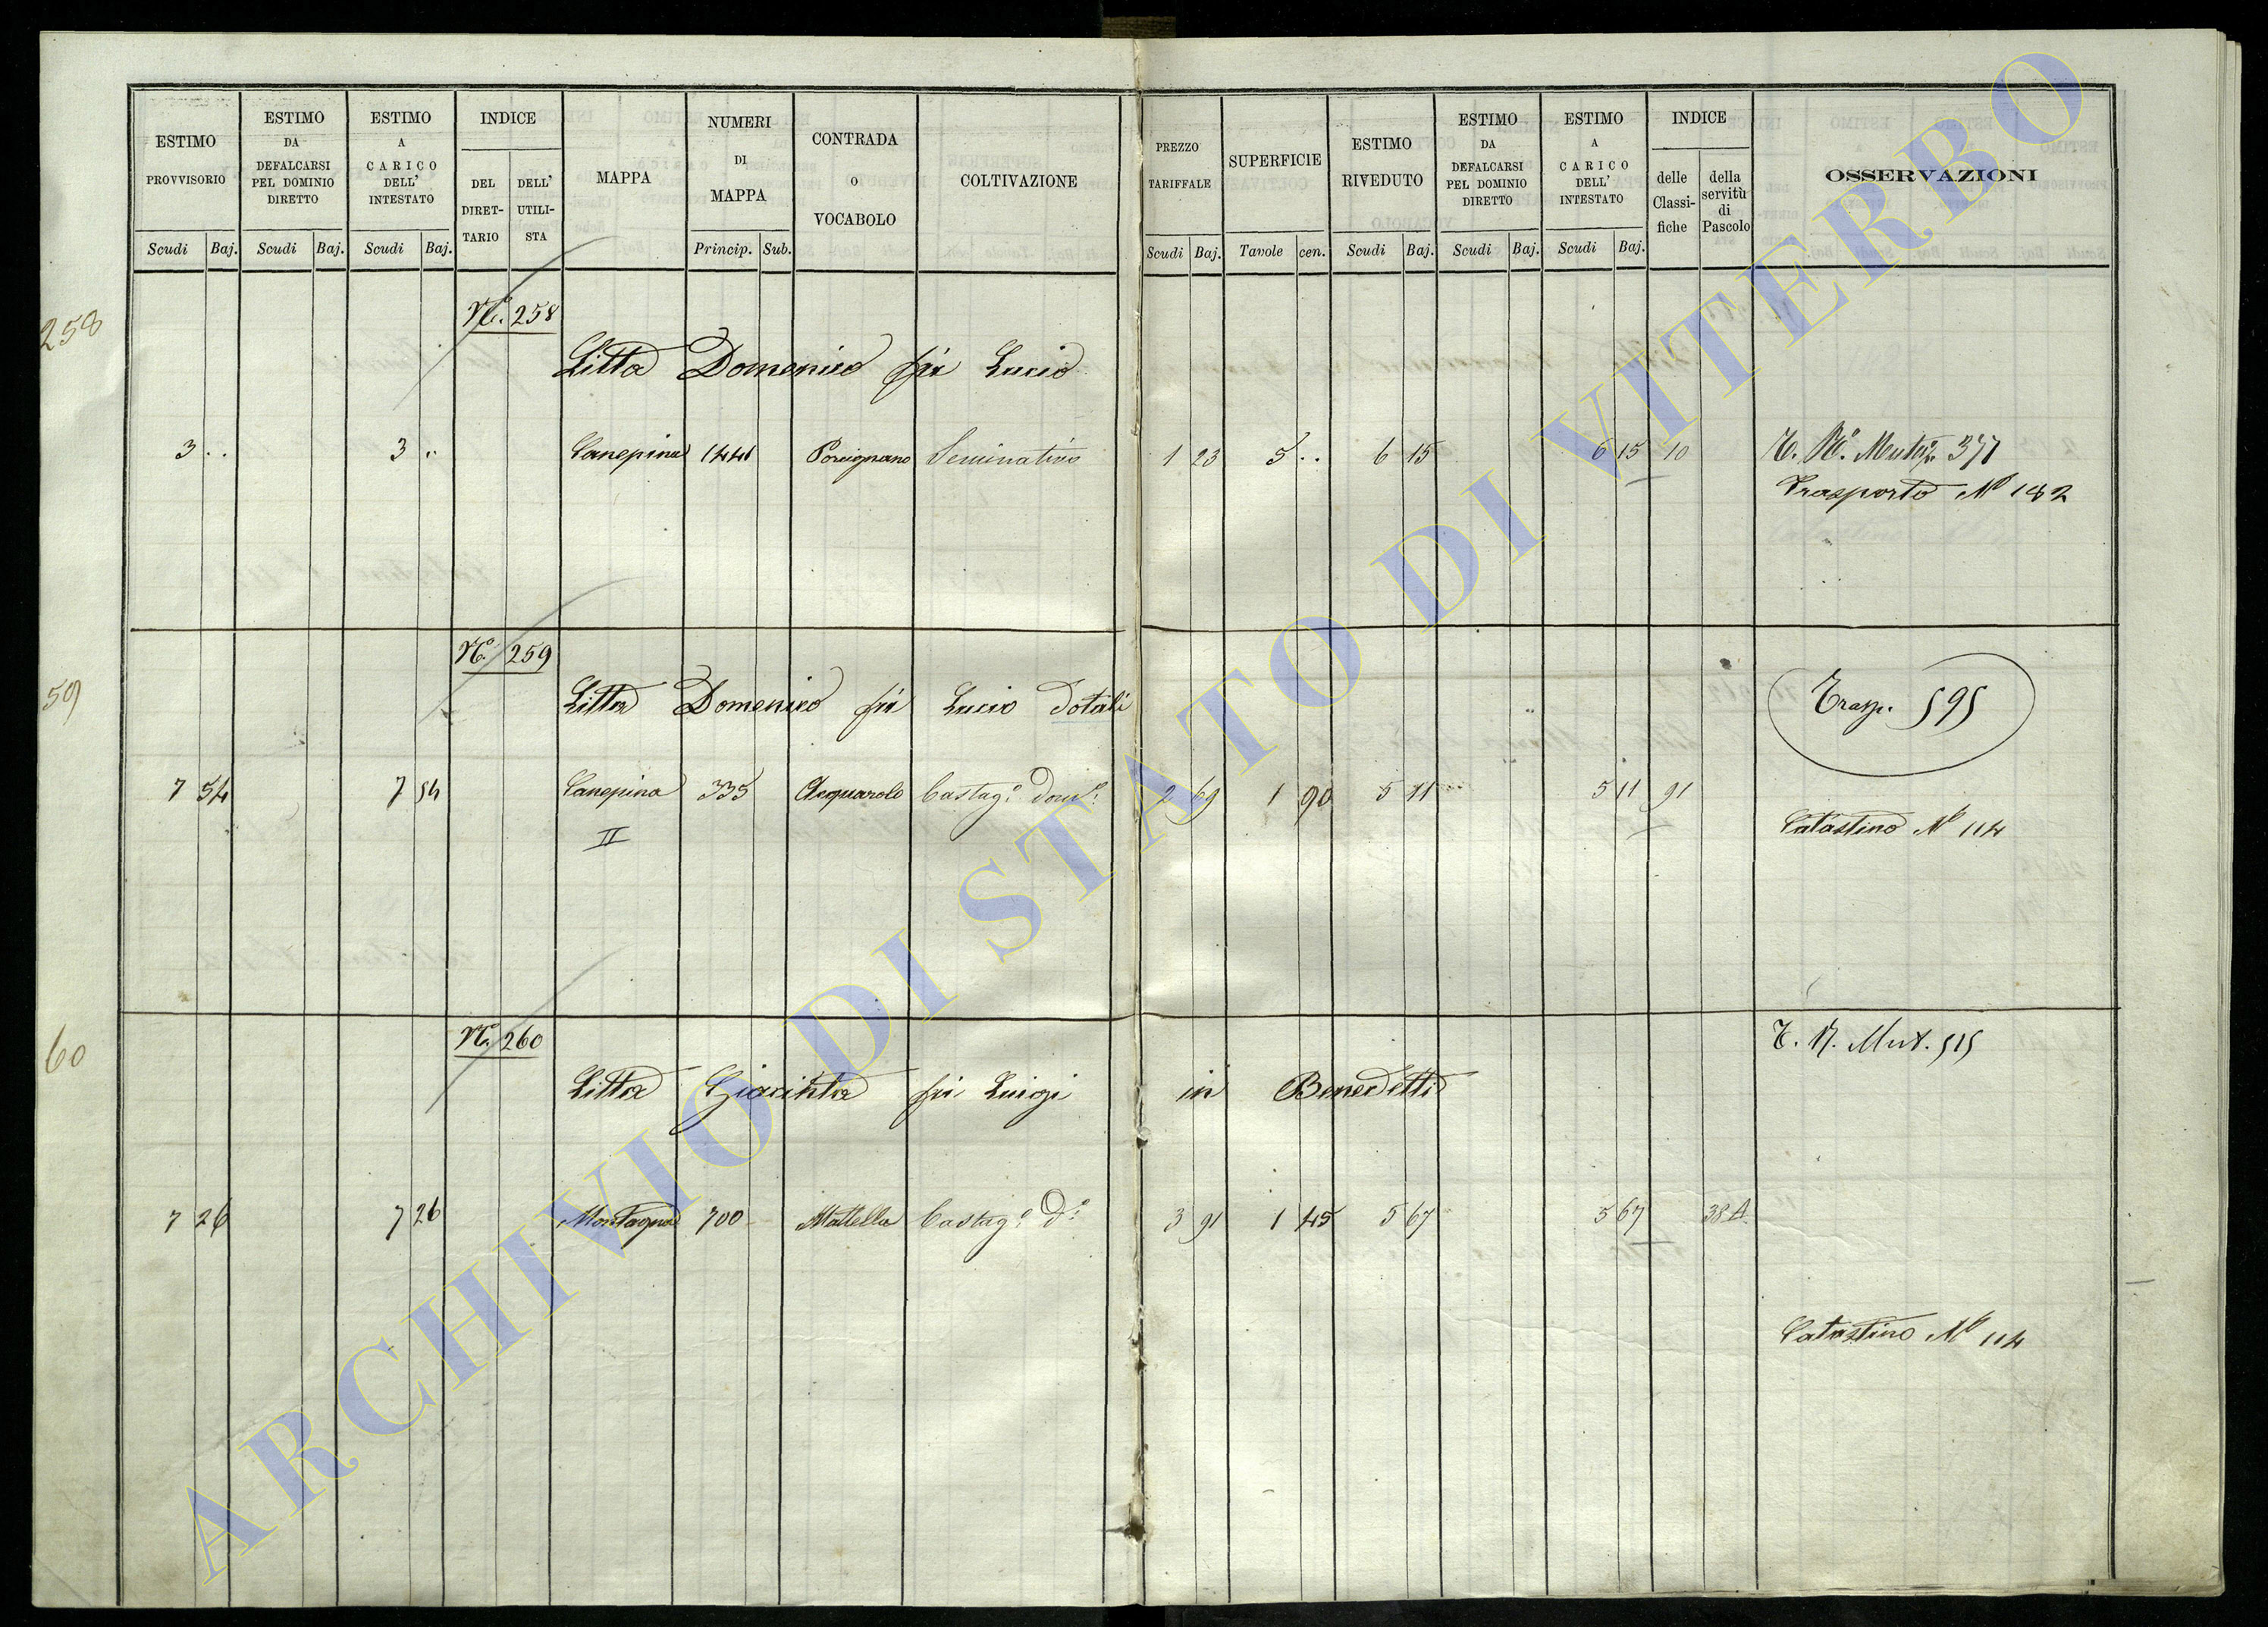 ESTIMO PROVVISORIO
ESTIMO DA DEFALCARSI PEL DOMINIO DIRETTO
ESTIMO A CARICO DELL' INTESTATO
INDICE
DEL DIRET-TARIO
DELL' UTILI-STA
MAPPA
NUMERI DI MAPPA
CONTRADA O VOCABOLO
COLTIVAZIONE
PREZZO TARIFFALE
SUPERFICIE
ESTIMO RIVEDUTO
ESTIMO DA DEFALCARSI PEL DOMINIO DIRETTO
ESTIMO A CARICO DELL' INTESTATO
INDICE
delle Classi-fiche
della servitù di Pascolo
OSSERVAZIONI
Scudi Baj. Scudi Baj. Scudi Baj. Princip. Sub. Scudi Baj. Tavole cen. Scudi Baj. Scudi Baj. Scudi Baj.
258
No. 258
Litta Domenico fù Lucio
3 .. 3 .. Canepina Porcignano Seminativo 1 23 5 .. 6 15 6 15 10 377
Trasporto No 182
59
No. 259
Litta Domenico fù Lucio dotali
Trasp. 595
7 54 7 54 Canepina 335 Acquarolo Castag.o Dom.o 2 69 1 90 5 11 5 11 91
II
Catastino No 114
60
No. 260
T. N. Mut. 515
Litta Giacinta fù Luigi in Benedetti
7 26 7 26 Montagna 700 Mattella Castag.o D.o 3 91 1 45 5 67 5 67 38A
Catastino No 114
ARCHIVIO DI STATO DI VITERBO